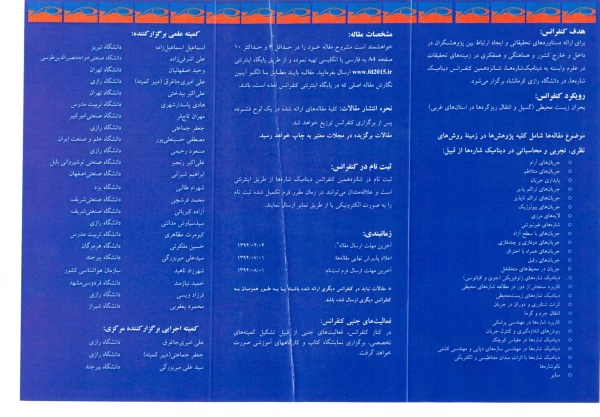 هدف کنفرانس:
برای ارائه دستاوردهای تحقیقاتی و ایجاد ارتباط بین پژوهشگران در
داخل و خارج کشور و هماهنگی و همفکری در زمینه‌های تحقیقات
در علوم وابسته به دینامیک شاره‌ها، شانزدهمین کنفرانس دینامیک
شاره‌ها، در دانشگاه رازی کرمانشاه برگزار می‌شود.
رویکرد کنفرانس:
بحران زیست محیطی (گسیل و انتقال ریزگردها در استان‌های غربی)
موضوع مقاله‌ها شامل کلیه پژوهش‌ها در زمینهٔ روش‌های
نظری، تجربی و محاسباتی در دینامیک شاره‌ها از قبیل:
جریان‌های آرام
جریان‌های متلاطم
پایداری جریان
جریان‌های تراکم پذیر
جریان‌های تراکم ناپذیر
جریان‌های بیولوژیک
لایه‌های مرزی
شاره‌های غیرنیوتنی
جریان‌های با سطح آزاد
جریان‌های دوفازی و چندفازی
جریان‌های همراه با احتراق
جریان‌های رقیق
جریان در محیط‌های متخلخل
دینامیک شاره‌های ژئوفیزیکی (جوی و اقیانوسی)
کاربرد سنجش از دور در مطالعه شاره‌های محیطی
دینامیک شاره‌های زیست‌محیطی
اثرات شناوری و دوران در جریان
انتقال جرم و گرما
کاربرد شاره‌ها در مهندسی پزشکی
روش‌های اندازه‌گیری و کنترل جریان
دینامیک شاره‌ها در مقیاس کوچک
دینامیک شاره‌ها در مهندسی سازه‌های دریایی و مهندسی کشتی
دینامیک شاره‌ها با اثرات میدان مغناطیسی و الکتریکی
نانوشاره‌ها
سایر
مشخصات مقاله:
خواهشمند است مشروح مقاله خود را در حداقل ۴ و حداکثر ۱۰
صفحه A4 به فارسی یا انگلیسی تهیه نموده و از طریق پایگاه اینترنتی
www.fd2015.ir ارسال بفرمایید. مقاله بایید مطابق با الگو آیین
نگارش مقاله اصلی که در پایگاه اینترنتی کنفرانس آمده است، باشد.
نحوه انتشار مقالات: کلیه مقاله‌های ارائه شده در یک لوح فشرده
پس از برگزاری کنفرانس توزیع خواهد شد.
مقالات برگزیده در مجلات معتبر به چاپ خواهد رسید.
ثبت نام در کنفرانس:
ثبت نام در شانزدهمین کنفرانس دینامیک شاره‌ها از طریق اینترنتی
است و علاقه‌مندان می‌توانند در زمان مقرر فرم تکمیل شده ثبت نام
را به صورت الکترونیکی یا از طریق نمابر ارسال نمایند.
زمانبندی:
آخرین مهلت ارسال مقاله*:
اعلام پذیرش نهایی مقاله‌ها: ۱۳۹۴/۰۷/۰۱
آخرین مهلت ارسال فرم ثبت‌نام ۱۳۹۴/۰۸/۰۱
* مقالات نباید در کنفرانس دیگری ارائه شده باشد یا به طور همزمان به
کنفرانس دیگری ارسال شده باشد.
فعالیت‌های جنبی کنفرانس:
در کنار کنفرانس، فعالیت‌های جنبی از قبیل تشکیل کمیته‌های
تخصصی، برگزاری نمایشگاه کتاب و کارگاههای آموزشی صورت
خواهد گرفت.
کمیته علمی برگزارکننده:
اسماعیل اسماعیل‌زاده دانشگاه تبریز
علی اشرفی‌زاده دانشگاه صنعتی‌خواجه‌نصیرالدین‌طوسی
وحید اصفهانیان دانشگاه تهران
علی امیری‌جاغرق (دبیر کمیته) دانشگاه رازی
علی‌اکبر بیدختی دانشگاه تهران
هادی پاسدارشهری دانشگاه تربیت مدرس
مهران تاج‌فر دانشگاه صنعتی‌امیرکبیر
جعفر جماعتی دانشگاه رازی
مصطفی حسینعلی‌پور دانشگاه علم و صنعت ایران
مسعود رحیمی دانشگاه رازی
علی‌اکبر رنجبر دانشگاه صنعتی نوشیروانی بابل
ابراهیم شیرانی دانشگاه صنعتی‌اصفهان
شهرام طالبی دانشگاه یزد
محمد فرشچی دانشگاه صنعتی‌شریف
آزاده کبریائی دانشگاه صنعتی‌شریف
سیدسیاوش مدائنی دانشگاه رازی
کیومرث مظاهری دانشگاه تربیت مدرس
حسین ملکوتی دانشگاه هرمزگان
سیدعلی میربزرگی دانشگاه بیرجند
شهرزاد ناهید سازمان هواشناسی کشور
حمید نیازمند دانشگاه فردوسی‌مشهد
فرزاد ویسی دانشگاه رازی
محمود یعقوبی دانشگاه شیراز
کمیته اجرایی برگزارکننده مرکزی:
علی امیری‌جاغرق دانشگاه رازی
جعفر جماعتی(دبیر کمیته) دانشگاه رازی
سید علی میربزرگی دانشگاه بیرجند